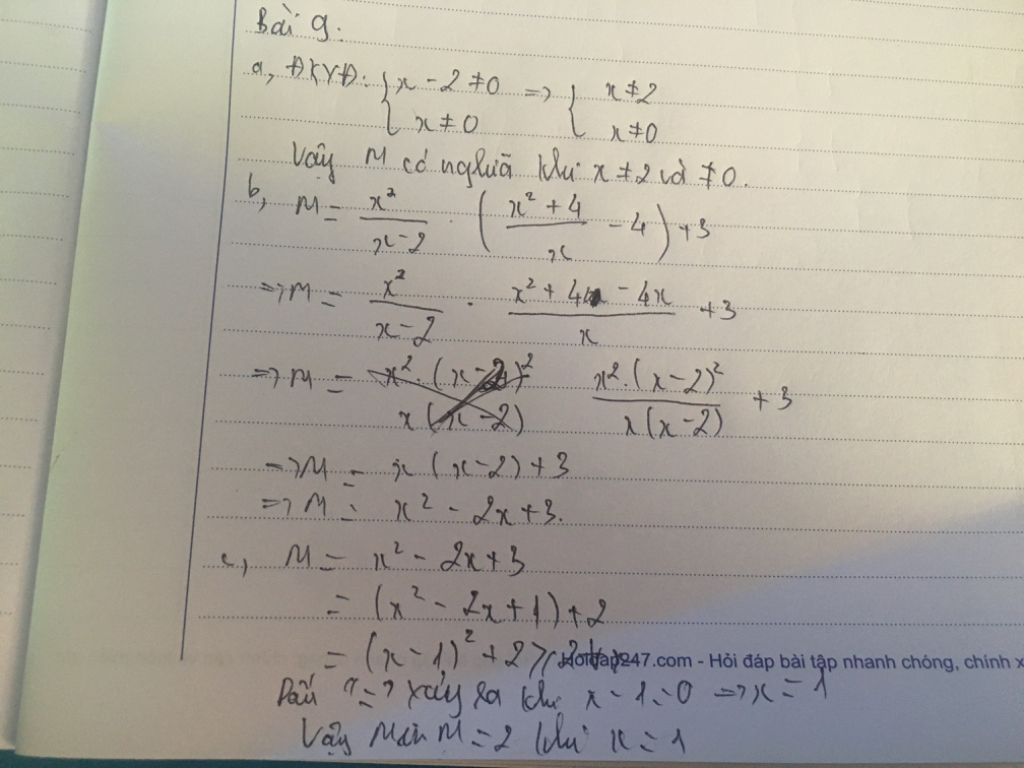 Bài 9.
a, ĐKXĐ: { x - 2 ≠ 0 => { x ≠ 2
x ≠ 0 x ≠ 0
Vậy M có nghĩa khi x ≠ 2 và ≠ 0.
b, M = x²/(x-2) · ((x² + 4)/x - 4) + 3
=> M = x²/(x-2) · (x² + 4 - 4x)/x + 3
=> M = x² (x-2)²/x(x-2) x².(x-2)²/x(x-2) + 3
=> M = x (x-2) + 3
=> M = x² - 2x + 3.
c, M = x² - 2x + 3
= (x² - 2x + 1) + 2
= (x - 1)² + 2 ≥ 2 ∀x
Hoitap247.com - Hỏi đáp bài tập nhanh chóng, chính x
Dấu "=" xảy ra khi x - 1 = 0 => x = 1
Vậy Min M = 2 khi x = 1